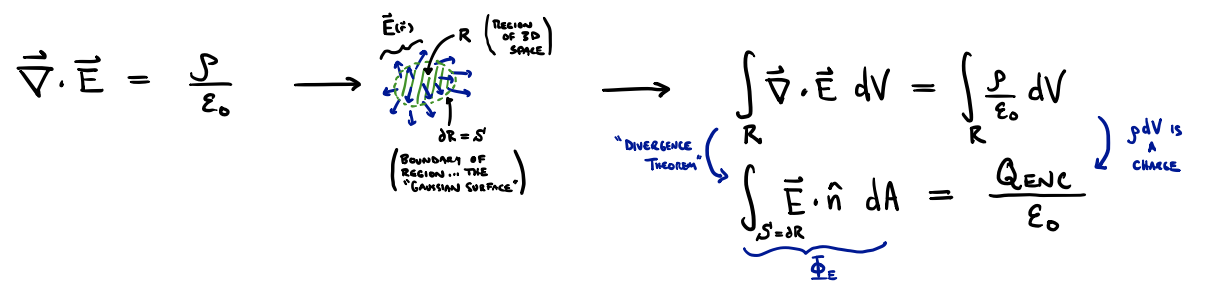 ∇⃗ · E⃗ = ρ/ε₀
E⃗(r⃗)
R
(REGION OF 3D SPACE)
∂R = S
(BOUNDARY OF
REGION... THE
"GAUSSIAN SURFACE")
∫_R ∇⃗ · E⃗ dV = ∫_R ρ/ε₀ dV
"DIVERGENCE
THEOREM"
ρdV IS
A
CHARGE
∫_{S=∂R} E⃗ · n̂ dA = Q_ENC/ε₀
Φ_E